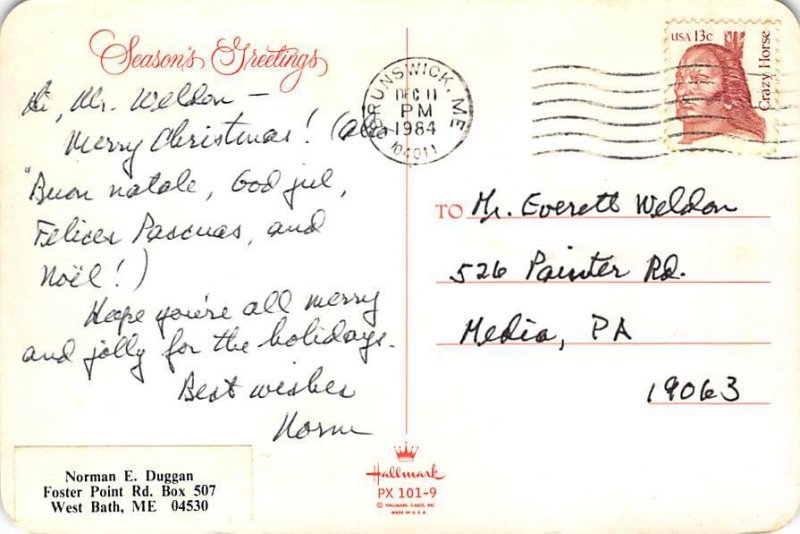 Season's Greetings
Hi, Mr. Weldon —
Merry Christmas! (Also
"Buon natale, God jul,
Felices Pascuas, and
Noël!)
Hope you're all merry
and jolly for the holidays.
Best wishes
Norm
Norman E. Duggan
Foster Point Rd. Box 507
West Bath, ME 04530
BRUNSWICK, ME
DEC 11
PM
1984
04011
USA 13c
Crazy Horse
TO Mr. Everett Weldon
526 Painter Rd.
Media, PA
19063
Hallmark
PX 101-9
© HALLMARK CARDS, INC.
MADE IN U.S.A.